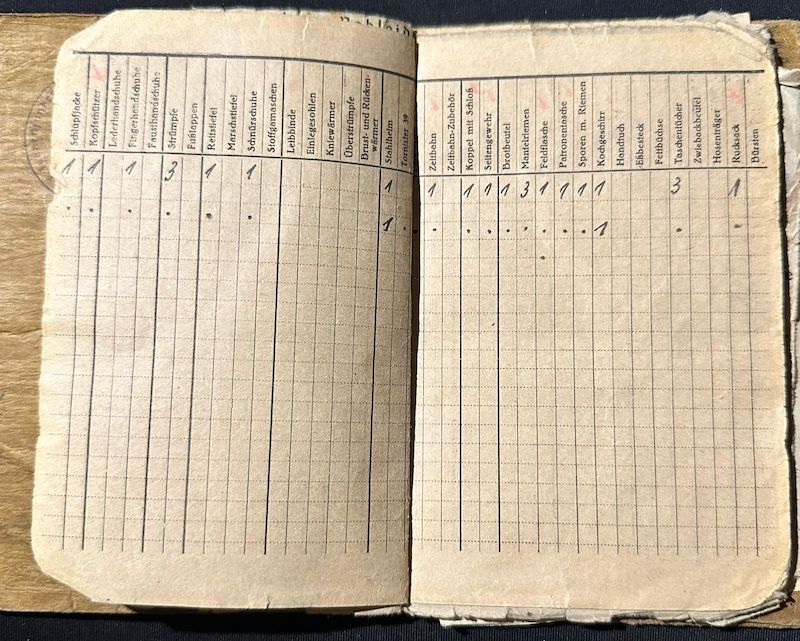 Schlupfjacke
Kopfschützer
Lederhandschuhe
Fingerhandschuhe
Fausthandschuhe
Strümpfe
Fußlappen
Reitstiefel
Marschstiefel
Schnürschuhe
Stoffgamaschen
Leibbinde
Einlegesohlen
Kniewärmer
Überstrümpfe
Brust- und Rücken-
wärmer
Stahlhelm
Tornister 39
Zeltbahn
Zeltbahn-Zubehör
Koppel mit Schloß
Seitengewehr
Brotbeutel
Mantelriemen
Feldflasche
Patronentasche
Sporen m. Riemen
Kochgeschirr
Handtuch
Eßbesteck
Fettbüchse
Taschentücher
Zwiebackbeutel
Hosenträger
Rucksack
Bürsten
1 1 1 3 1 1 1 1 1 1 1 3 1 1 1 1 3 1
. . . . . . 1 . . . . . . . . . 1 . .